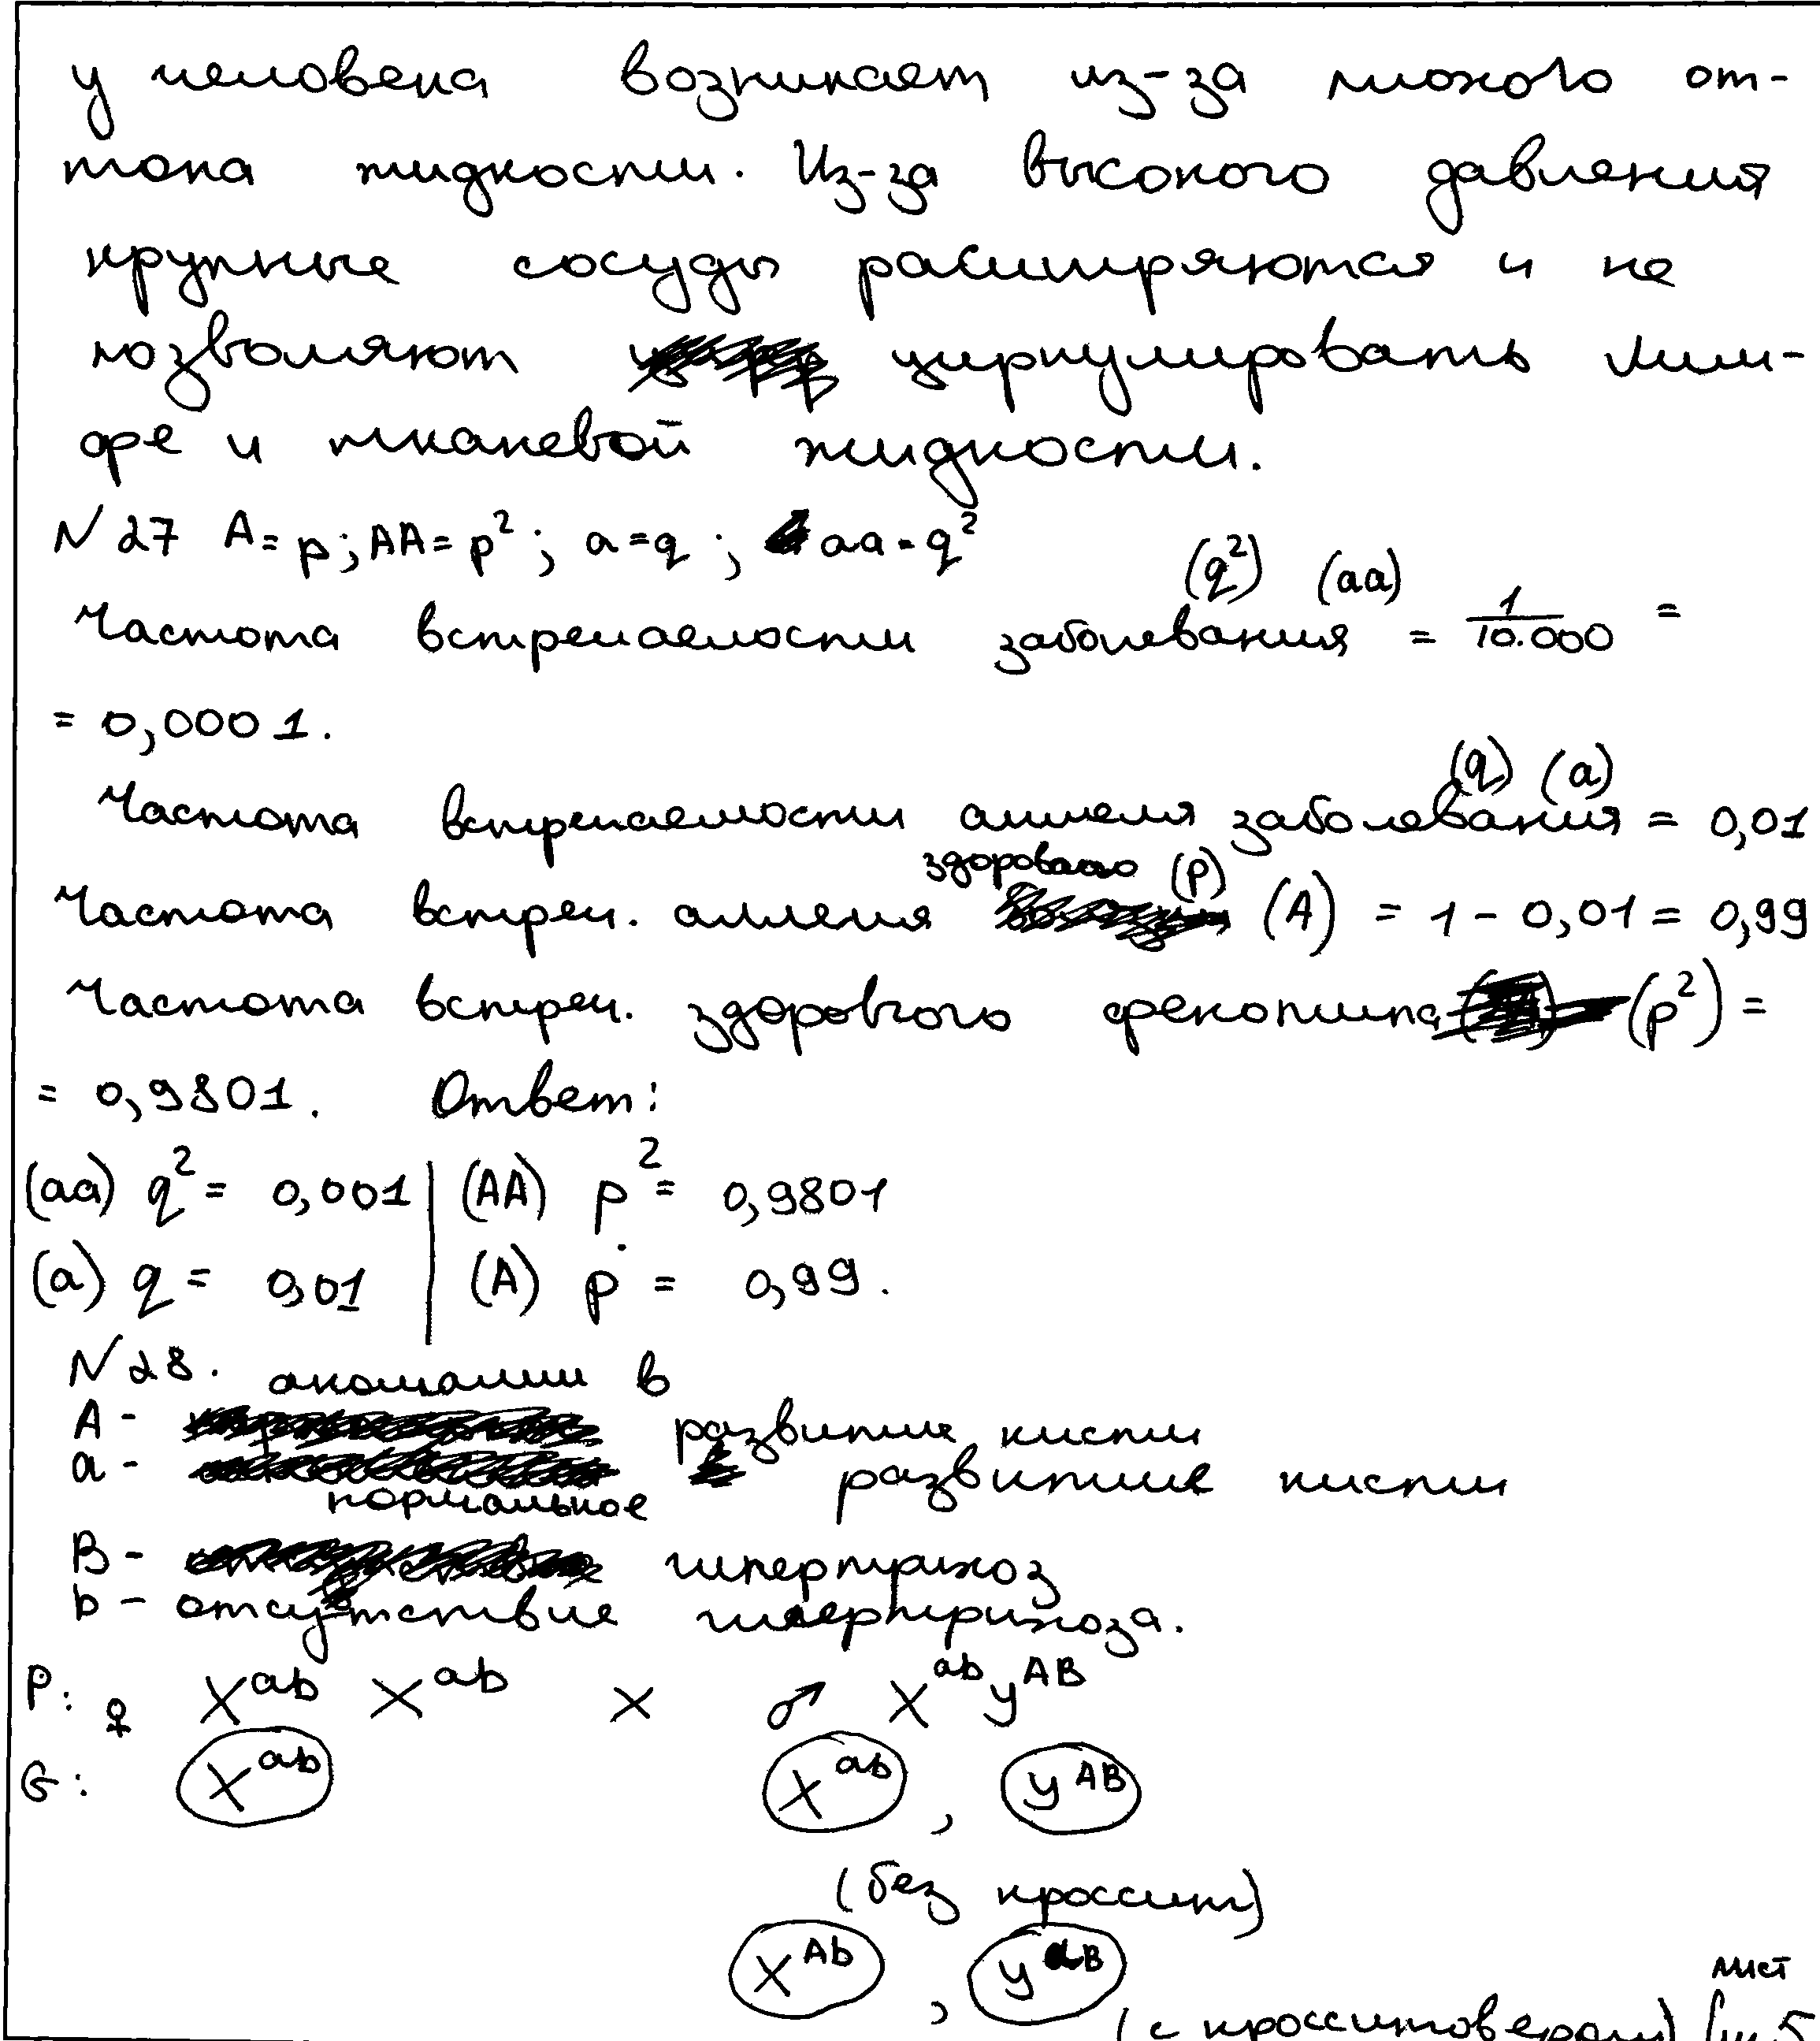 у человека возникает из-за плохого от-
тока жидкости. Из-за высокого давления
крупные сосуды расширяются и не
позволяют циркулировать лим-
фе и тканевой жидкости.
N 27 A = p; AA = p²; a = q; aa = q²
(q²) (aa)
Частота встречаемости заболевания = 1/10.000 =
= 0,0001.
(q) (a)
Частота встречаемости аллеля заболевания = 0,01
здорового (p)
Частота встреч. аллеля (A) = 1 - 0,01 = 0,99
Частота встреч. здорового фенотипа (p²) =
= 0,9801. Ответ:
(aa) q² = 0,001 | (AA) p² = 0,9801
(a) q = 0,01 | (A) p = 0,99.
N 28. аномалии в
A - развитие кисти
a - развитие кисти
нормальное
B - гипертрихоз
b - отсутствие гипертрихоза.
P: ♀ X^ab X^ab × ♂ X^ab y^AB
G: X^ab X^ab, y^AB
(без кроссинг)
X^Ab, y^aB
лист
(с кроссинговером)